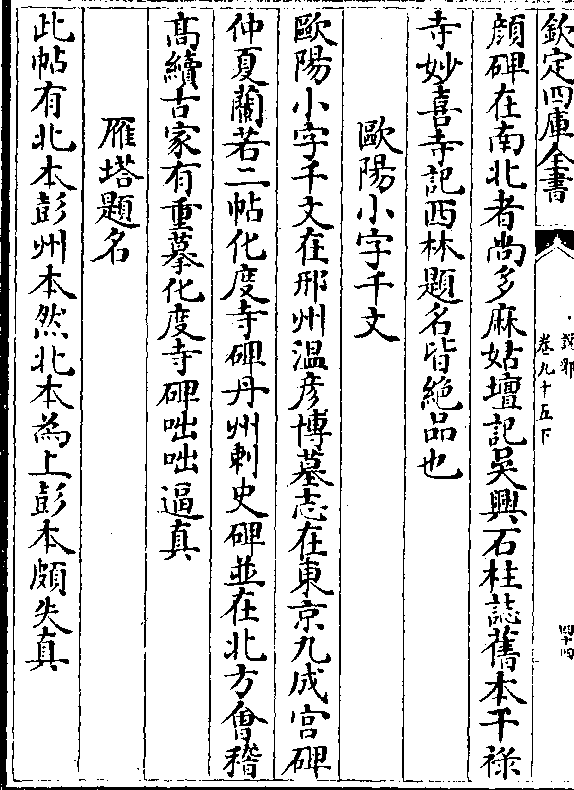 欽定四庫全書
說郛
卷九十五下
四十四
顔碑在南北者尚多麻姑壇記吳興石柱誌舊本干祿
寺妙喜寺記西林題名皆絶品也
歐陽小字千文
歐陽小字千文在邢州温彦博墓志在東京九成宫碑
仲夏蘭若二帖化度寺碑丹州刺史碑並在北方會稽
髙續古家有重摹化度寺碑咄咄逼真
雁塔題名
此帖有北本彭州本然北本為上彭本頗失真